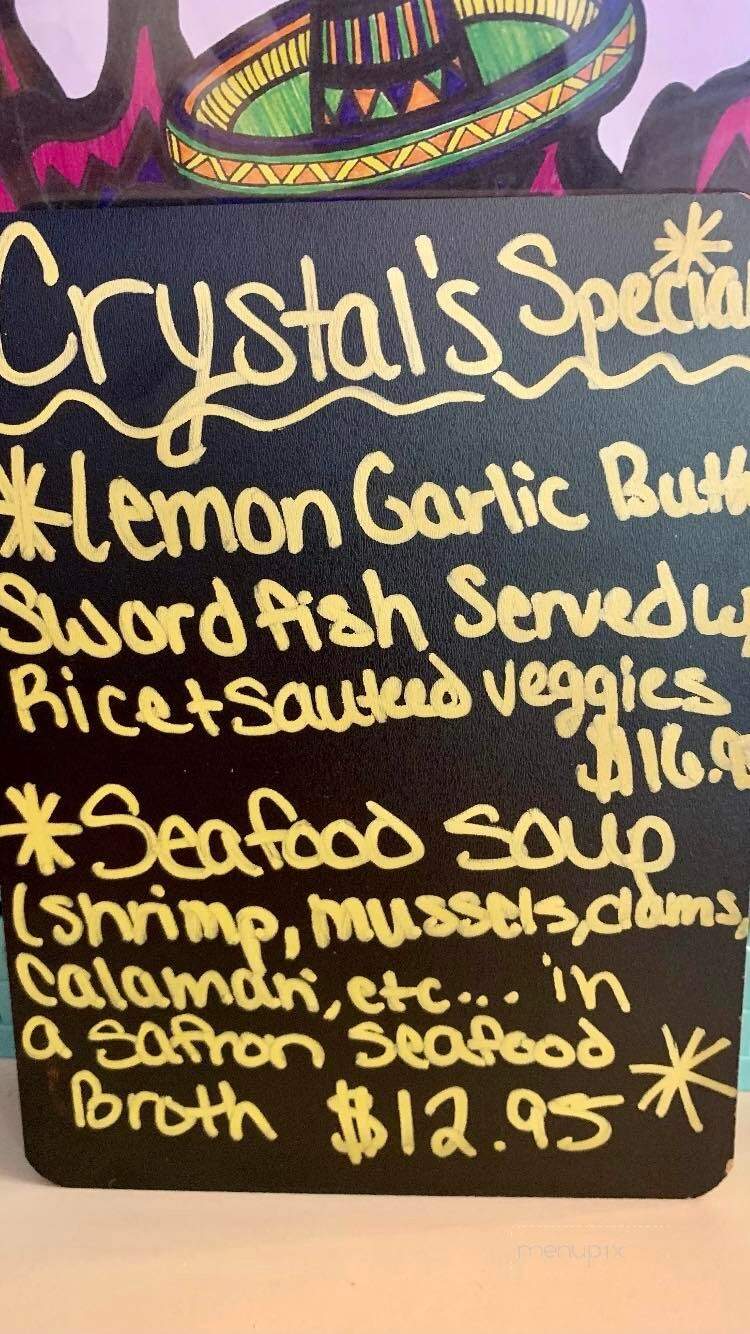 Crystal's Special
*Lemon Garlic Butt
Swordfish Served w/
Rice + Sauteed veggies
$16.9
*Seafood Soup
(shrimp, mussels, clams,
Calamari, etc... in
a saffron seafood
Broth $12.95
menupix